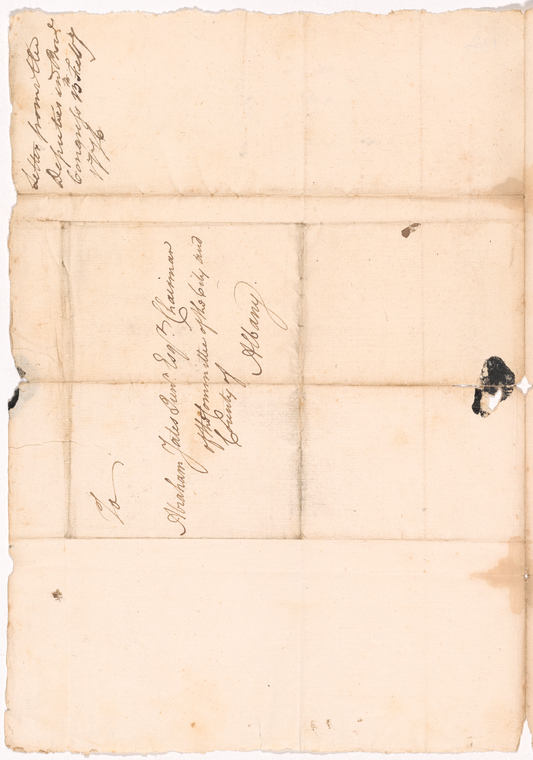 Letter from the
Deputies in Prov.
Congress 13 Feby
1776
To
Abraham Yates Junr. Esqr. Chairman
of the Committee of the City and
County of
Albany.